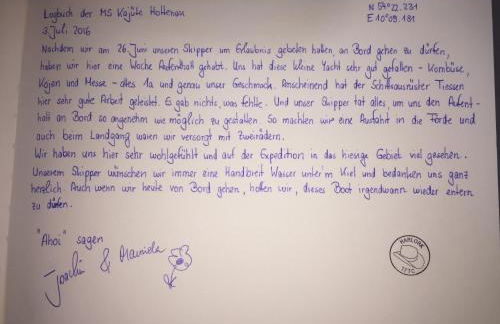 Logbuch der MS Kajüte Holtenau
N 54°22.231
3. Juli 2016
E 10°09.191
Nachdem wir am 26. Juni unseren Skipper um Erlaubnis gebeten hatten, an Bord gehen zu dürfen,
haben wir hier eine Woche Aufenthalt gehabt. Uns hat diese kleine Yacht sehr gut gefallen - Kombüse,
Kojen und Messe - alles 1a und genau unser Geschmack. Anscheinend hat der Schiffsausrüster Tiessen
hier sehr gute Arbeit geleistet. Es gab nichts, was fehlte. Und unser Skipper tat alles, um uns den Aufent-
halt an Bord so angenehm wie möglich zu gestalten. So machten wir eine Ausfahrt in die Förde und
auch beim Landgang waren wir versorgt mit Zweirädern.
Wir haben uns hier sehr wohlgefühlt und auf der Expedition in das hiesige Gebiet viel gesehen.
Unserem Skipper wünschen wir immer eine Handbreit Wasser unter'm Kiel und bedanken uns ganz
herzlich. Auch wenn wir heute von Bord gehen, hoffen wir, dieses Boot irgendwann wieder entern
zu dürfen.
"Ahoi" sagen
Joachim & Manuela